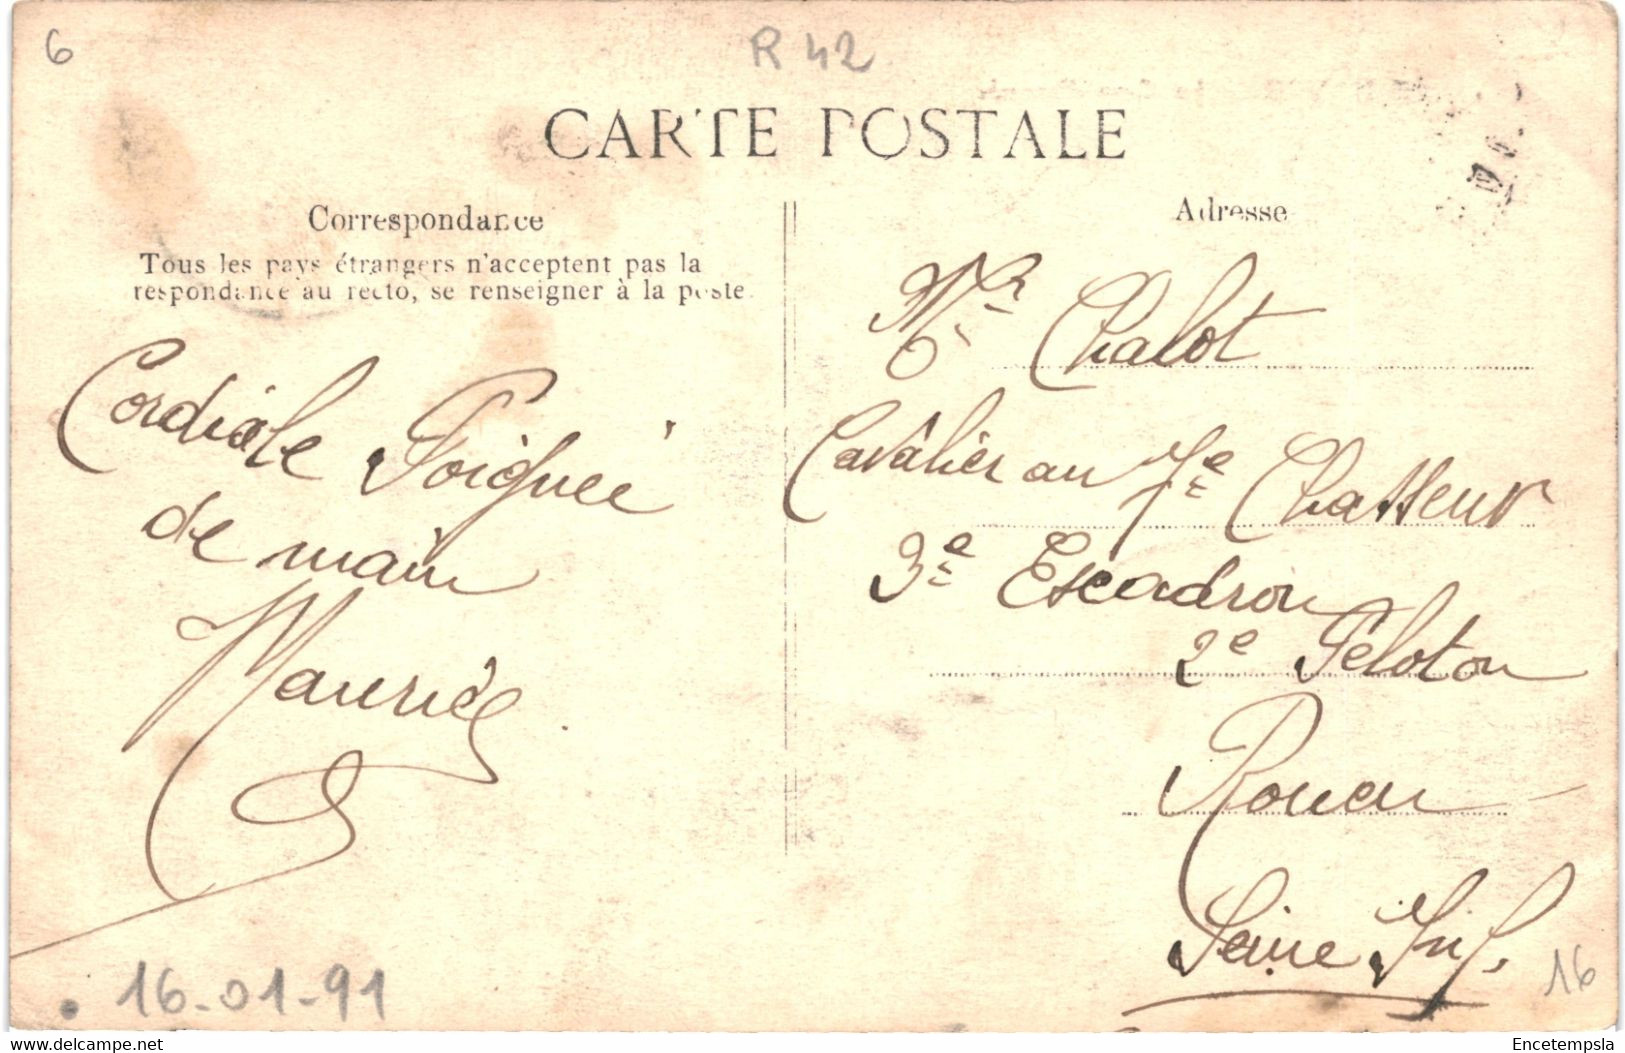 6
R 42
CARTE POSTALE
Correspondance
Tous les pays étrangers n'acceptent pas la
respondance au recto, se renseigner à la poste.
Cordiale Poignée
de main
Maurice
16-01-91
Adresse
Mr Chalot
Cavalier au 7e Chasseur
3e Escadron
2e Peloton
Rouen
Seine Inf.
16
delcampe.net
Encetempsla